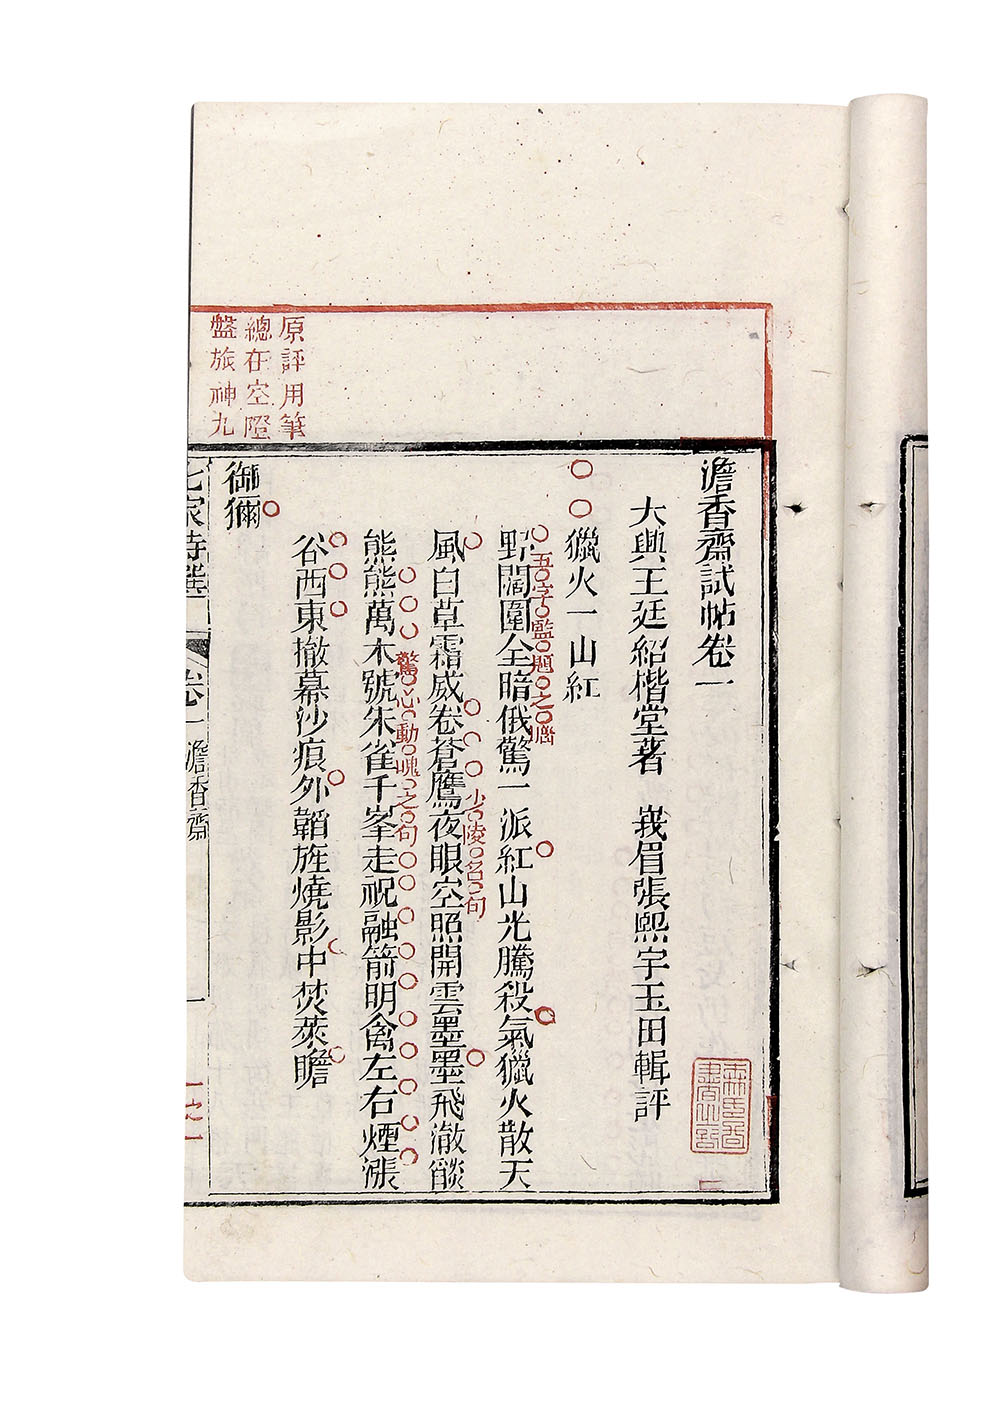 澹香齋試帖卷一
大興王廷紹楷堂著　峩眉張熙宇玉田輯評
獵火一山紅
野闊圍全暗俄驚一派紅山光騰殺氣獵火散天
五字監題之腦
風白草霜威卷蒼鷹夜眼空照開雲墨墨飛澈燄
少陵名句
熊熊萬木號朱雀千峯走祝融箭明禽左右煙漲
驚心動魄之句
谷西東撤幕沙痕外韜旌燒影中焚萊瞻
御獮
原評用筆
總在空隥
盤旅神九
七家詩選　卷一　澹香齋　一